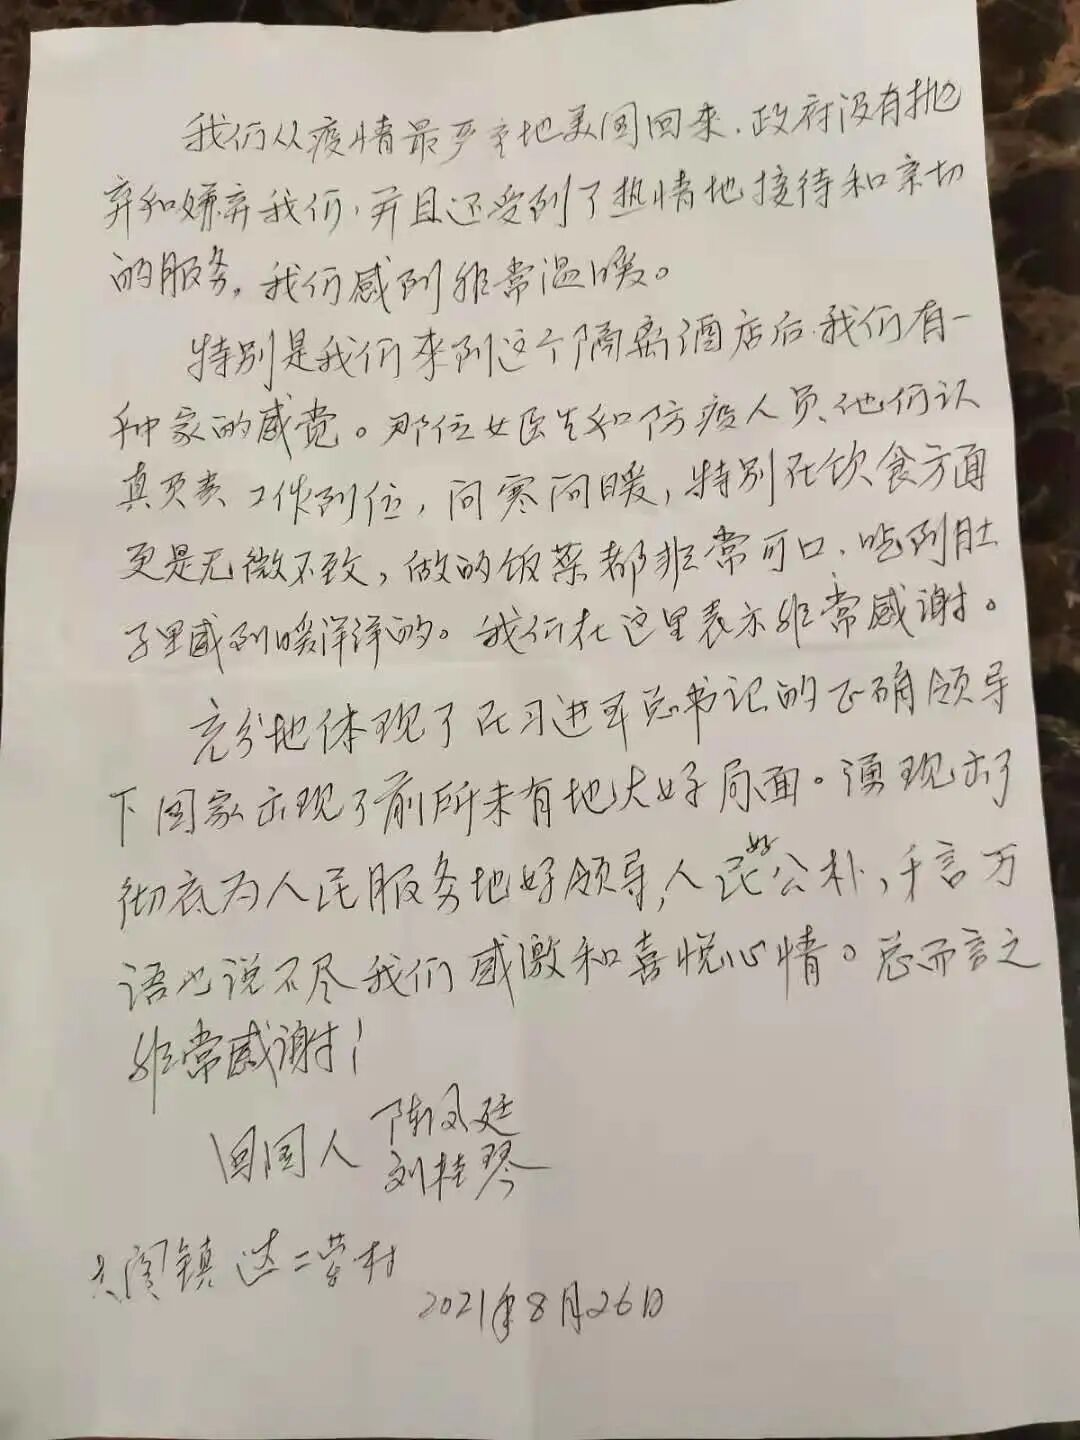 我们从疫情最严重地美国回来.政府没有抛
弃和嫌弃我们,并且还受到了热情地接待和亲切
的服务,我们感到非常温暖。
特别是我们来到这个隔离酒店后.我们有一
种家的感觉。那位女医生和防疫人员、他们认
真负责工作到位,问寒问暖,特别在饮食方面
更是无微不致,做的饭菜都非常可口、吃到肚
子里感到暖洋洋的。我们在这里表示非常感谢。
充分地体现了在习进平总书记的正确领导
下国家出现了前所未有地大好局面。湧现出了
彻底为人民服务地好领导,人民好公朴,千言万
语也说不尽我们感激和喜悦心情。总而言之
非常感谢!
回国人 陈凤廷
刘桂琴
镇达二营村
2021年8月26日